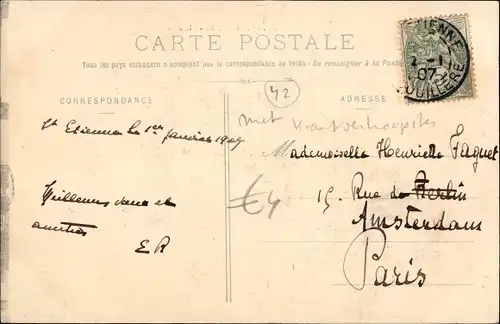 CARTE POSTALE
Tous les pays étrangers n'acceptent pas la correspondance au recto (Se renseigner à la Poste
CORRESPONDANCE
ADRESSE
42
ETIENNE
2 - 1
07
St Etienne le 1er Janvier 1907
Meilleurs vœux et
amitiés
E R
met
€4
Mademoiselle Henriette Faguet
15. Rue de Berlin
Amsterdam
Paris